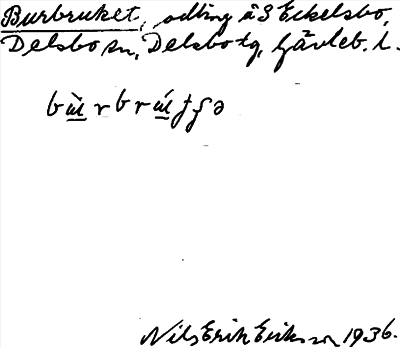 Burbruket, odling å S Eckelsbo,
Delsbo sn, Delsbo tg, Gävleb. l.
Nils Erik Erikson 1936.